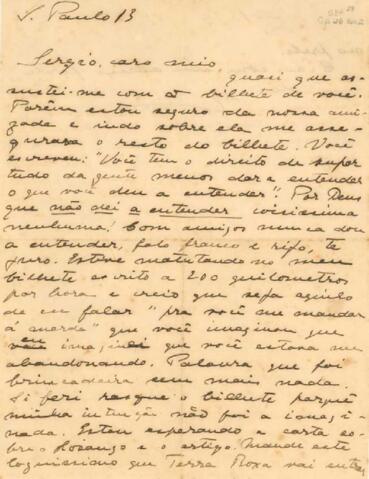 S. Paulo 13
Sergio, caro mio,
quasi que as-
sustei-me com o bilhete de você.
Porêm estou seguro da nossa ami-
zade e indo sobre ela me asse-
gurava o resto do bilhete. Você
escreveu: "Você tem o direito de supor
tudo da gente menos dar a entender
o que você deu a entender". Por Deus
que não dei a entender coisissima
nenhuma! Com amigos nunca dou
a entender, falo franco e rijo, te
juro. Estive matutando no meu
bilhete escrito a 200 quilometros
por hora e creio que seja aquilo
de eu falar "pra você me mandar
á merda" que você imaginou que
eu imaginei que você estava me
abandonando. Palavra que foi
brincadeira sem mais nada.
Si feri rasgue o bilhete porquê
minha intenção não foi a imagi-
nada. Estou esperando a carta so-
bre o Losango e o artigo. Mande este
loguissimo que Terra Roxa vai entrar